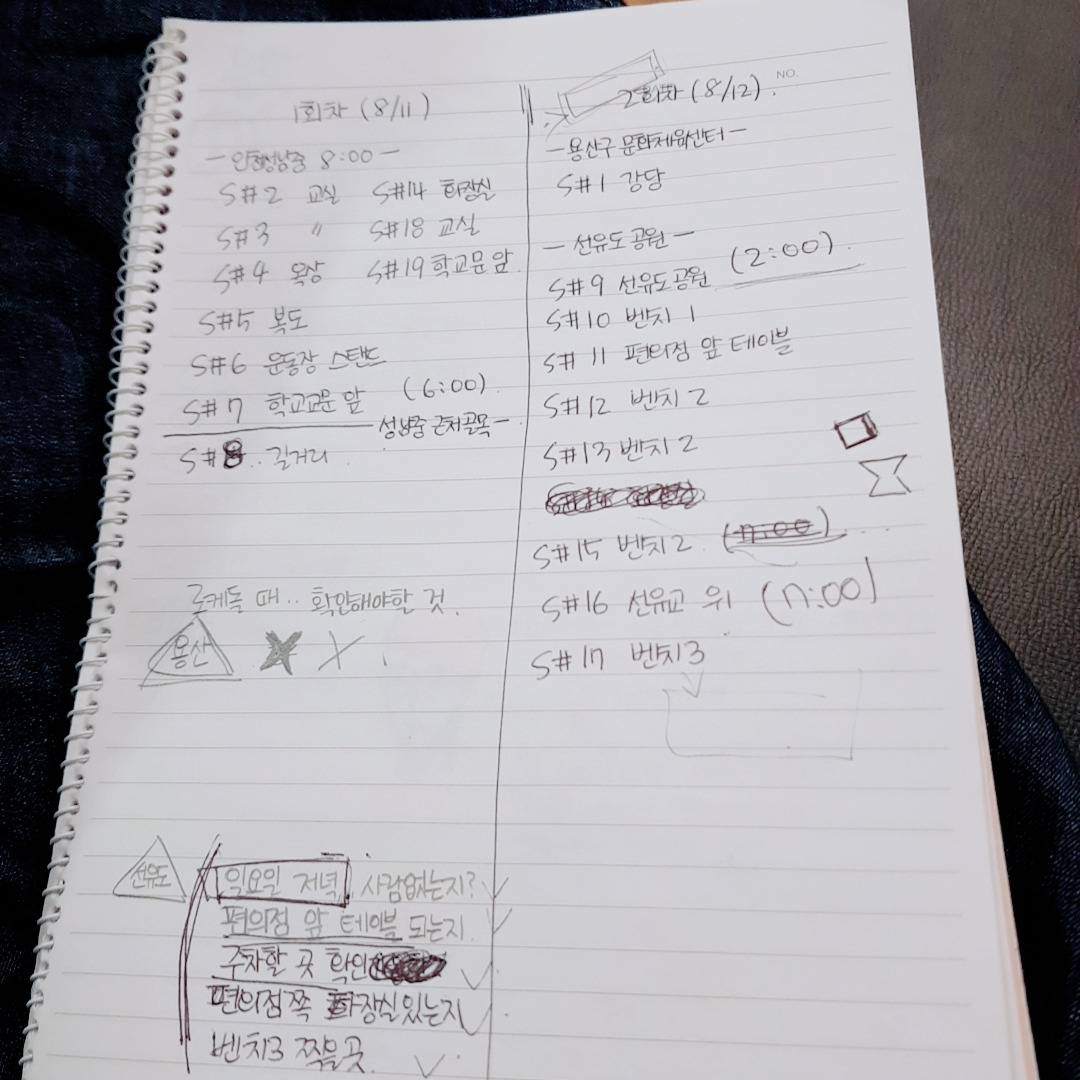 1회차 (8/11)
- 인천성남중 8:00 -
S#2 교실 S#14 화장실
S#3 〃 S#18 교실
S#4 옥상 S#19 학교문 앞
S#5 복도
S#6 운동장 스탠드
S#7 학교교문 앞 (6:00)
- 성남중 근처골목 -
S#8.. 길거리
로케돌 때.. 확인해야할 것.
용산
NO.
2회차 (8/12).
- 용산구 문화체육센터 -
S#1 강당
- 선유도공원 - (2:00).
S#9 선유도공원
S#10 벤치 1
S#11 편의점 앞 테이블
S#12 벤치 2
S#13 벤치 2
S#15 벤치 2 (7:00)
S#16 선유교 위 (7:00)
S#17 벤치3
선유도
일요일 저녁, 사람없는지?
편의점 앞 테이블 되는지.
주차할 곳 확인
편의점쪽 화장실있는지
벤치3 찍을곳.